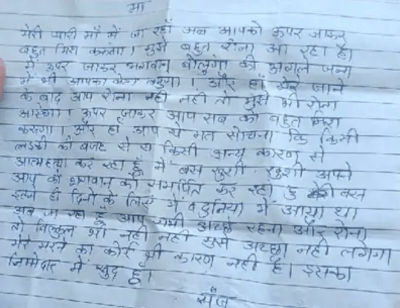 माँ
मेरी प्यारी माँ मैं जा रहा अब आपको ऊपर जाकर
बहुत मिस करूंगा। मुझे बहुत रोना आ रहा है।
में ऊपर जाकर भगवान बोलुगा की अगले जन्म
में भी आपका बेटा बनुगा। और हाँ मेरे जाने
के बाद आप रोना नहीं नहीं तो मुझे भी रोना
आएगा। ऊपर जाकर आप सब को बहुत मिस
करूगा। और हा आप ये मत सोचना कि किसी
लडकी की वजह से या किसी अन्य कारण से
आत्महत्या कर रहा हूं में बस खुशी खुशी अपने
आप को भगवान को समर्पित कर रहा हु बस
इतने ही दिनो के लिए में दुनिया में आया था
अब जा रहा हूँ आप सभी अच्छे रहना और रोना
तो बिल्कुल भी नहीं नहीं मुझे अच्छा नहीं लगेगा
मेरे मरने का कोई भी कारण नहीं है। इसका
जिम्मेदार में खुद हु।